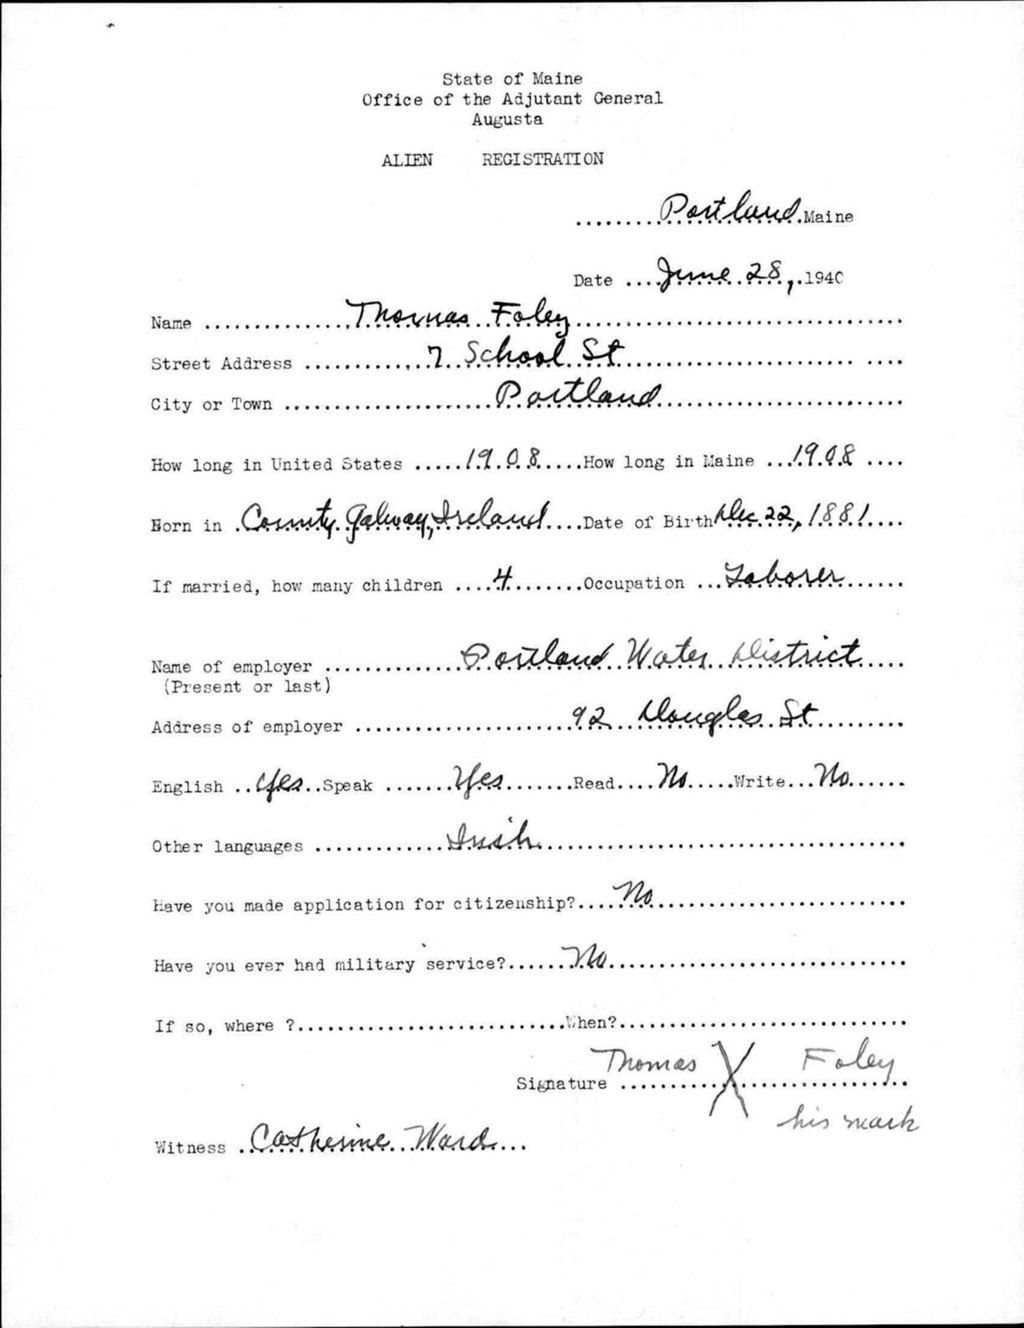 State of Maine
Office of the Adjutant General
Augusta
ALIEN REGISTRATION
.........Portland.Maine
Date ....June 28,.1940
Name ...............Thomas Foley...........................
Street Address ............7 School St.......................
City or Town .....................Portland......................
How long in United States .....1908.....How long in Maine ...1908....
Born in .County Galway, Ireland....Date of Birth Dec. 22, 1881....
If married, how many children ....4........Occupation ...Laborer......
Name of employer .............Portland Water District.....
(Present or last)
Address of employer .....................92 Douglas St..........
English ..Yes..Speak .......Yes.......Read....No.....Write...No......
Other languages .............Irish..............................
Have you made application for citizenship?....No........................
Have you ever had military service?......No............................
If so, where ?..........................When?............................
Signature Thomas X Foley
his mark
Witness .Catherine Ward...